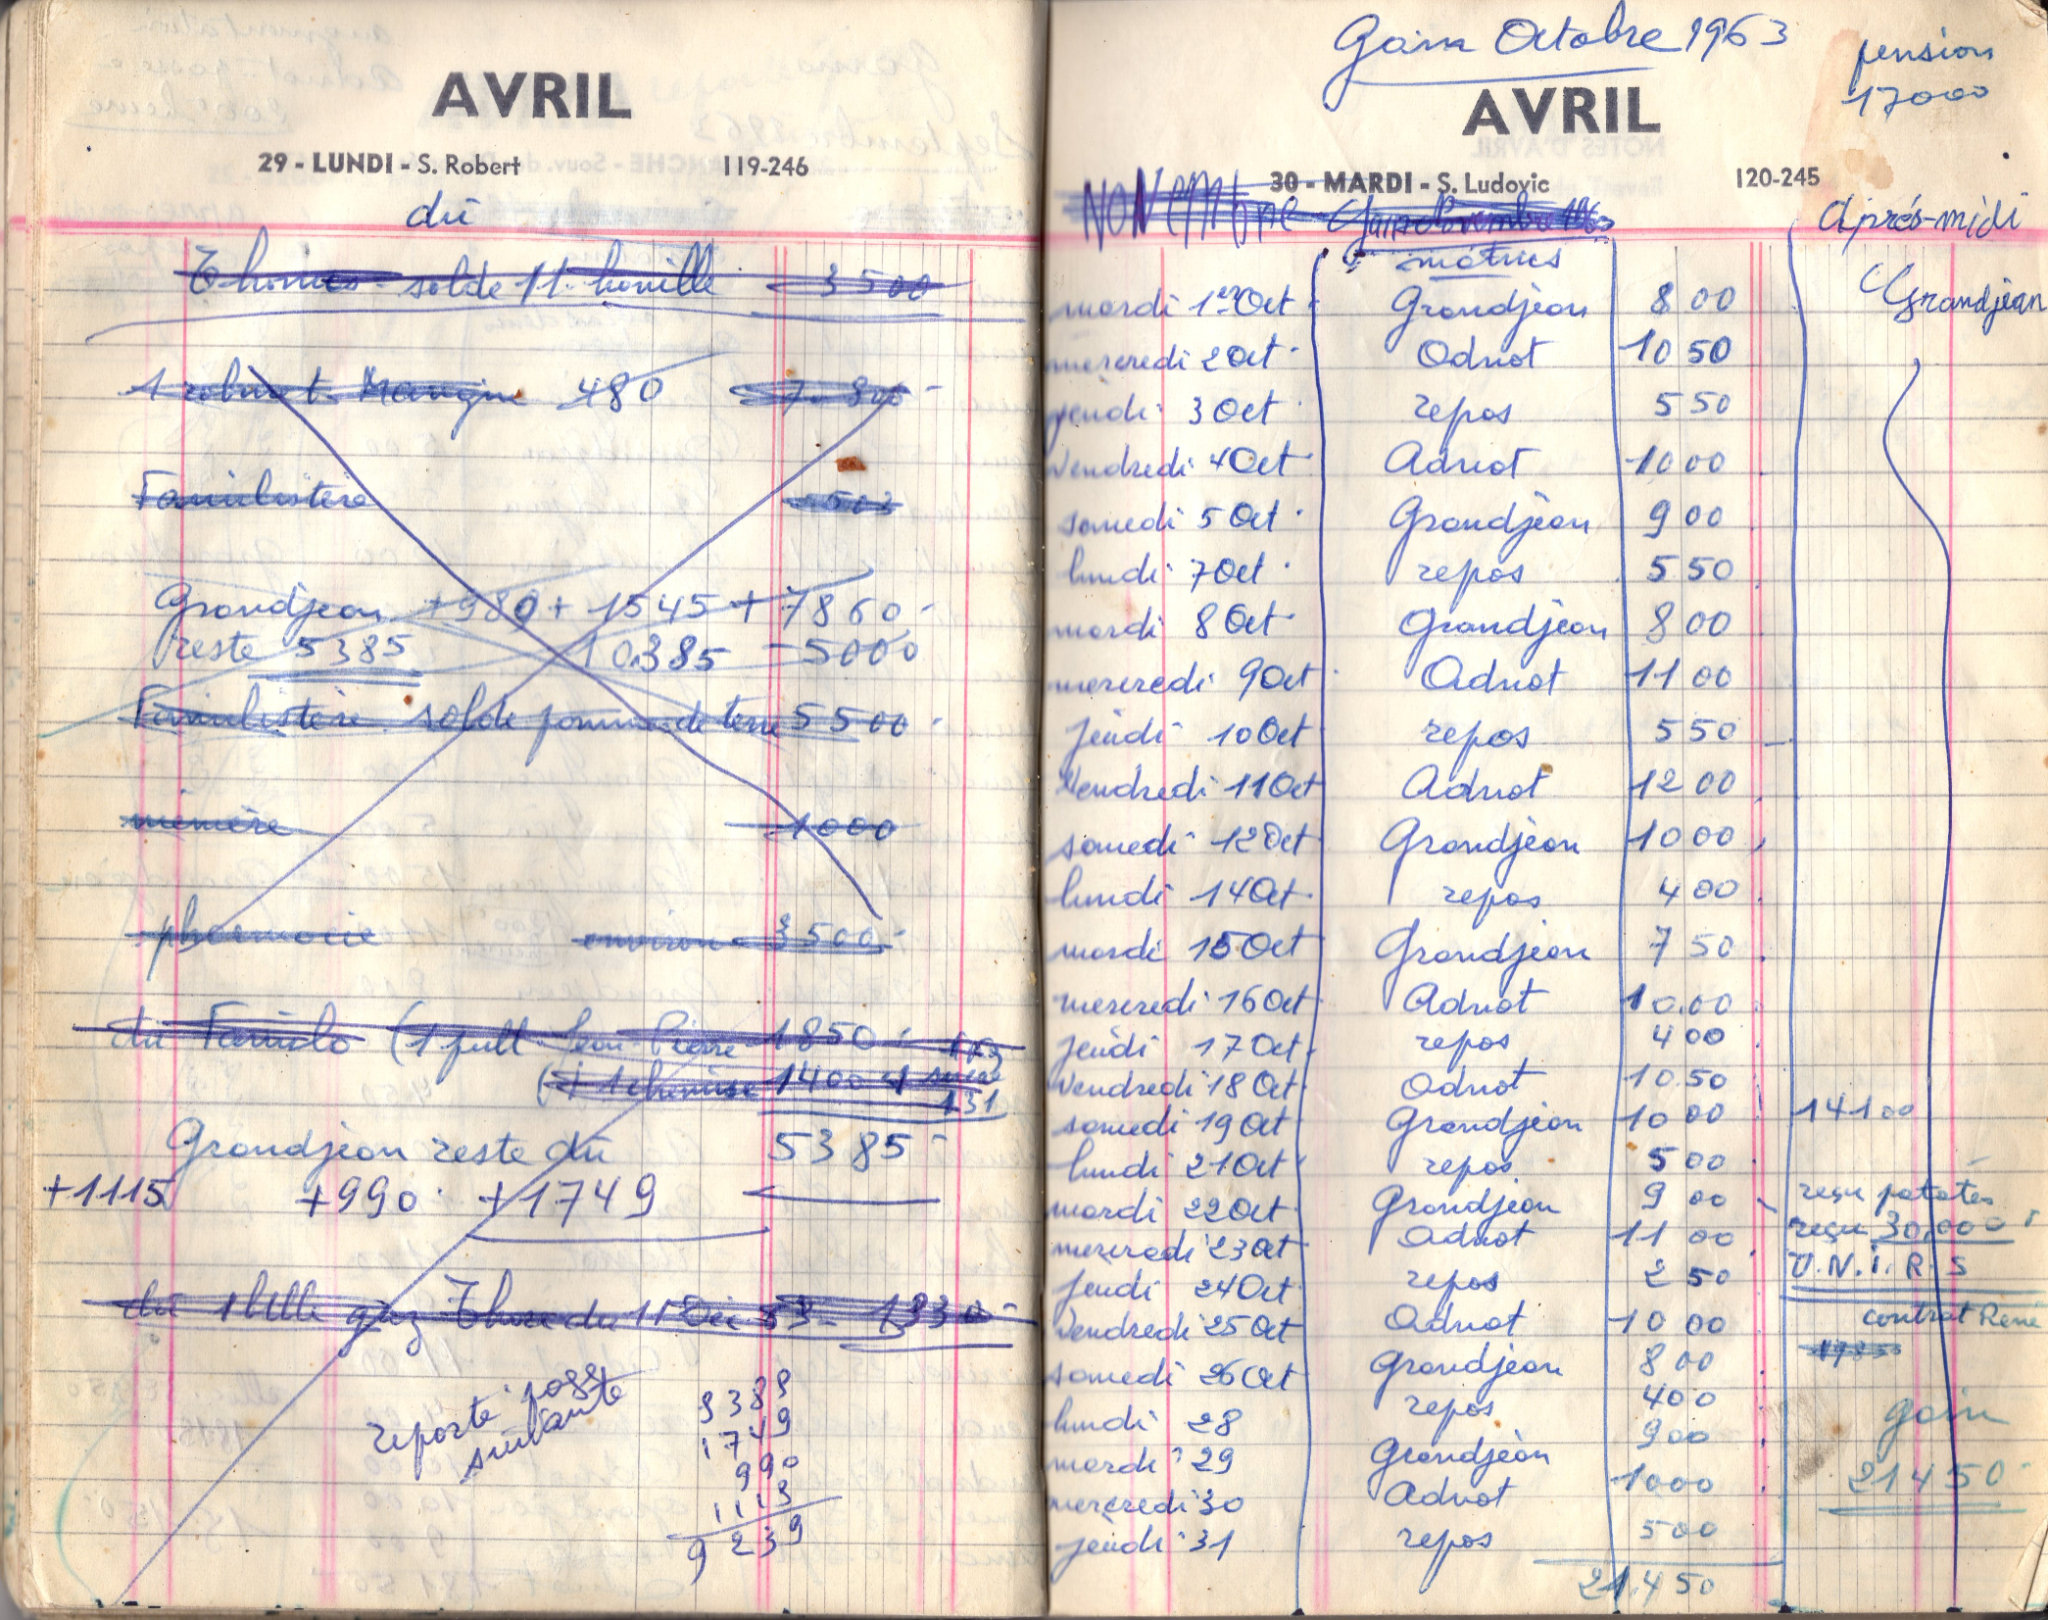 AVRIL
29 - LUNDI - S. Robert 119-246
dû
solde 1t. houille 3500
1 robinet Mangin 480
Familistère 503
Grandjean +980+1545+7860-
reste 5385 10.385 - 5000
Familistère solde pomme de terre 5500-
minière 1000
pharmacie environ 3500-
dû Familo (1 pull Jean-Pierre 1850
(+ 1 chemise 1400 + sucre
131
Grandjean reste dû 5385-
+1115 +990 +1749
reporté page
suivante
5385
1749
990
1115
9239
Gain Octobre 1963
pension
17000
AVRIL
30 - MARDI - S. Ludovic 120-245
NOVEMBRE
matines
après-midi
mardi 1er Oct Grandjean 8 00 Grandjean
mercredi 2 Oct Adnot 10 50
jeudi 3 Oct repos 5 50
vendredi 4 Oct Adnot 10 00
samedi 5 Oct Grandjean 9 00
lundi 7 Oct repos 5 50
mardi 8 Oct Grandjean 8 00
mercredi 9 Oct Adnot 11 00
jeudi 10 Oct repos 5 50
Vendredi 11 Oct Adnot 12 00
samedi 12 Oct Grandjean 10 00
lundi 14 Oct repos 4 00
mardi 15 Oct Grandjean 7 50
mercredi 16 Oct Adnot 10.00
jeudi 17 Oct repos 4 00
Vendredi 18 Oct Adnot 10 50
samedi 19 Oct Grandjean 10 00 14100
lundi 21 Oct repos 5 00
mardi 22 Oct Grandjean 9 00 reçu patates
mercredi 23 Oct Adnot 11 00 reçu 30.000
jeudi 24 Oct repos 2 50 U.N.i.R.S
Vendredi 25 Oct Adnot 10 00 contrat René
samedi 26 Oct Grandjean 8 00
lundi 28 repos 4 00 gain
mardi 29 Grandjean 9 00
mercredi 30 Adnot 10 00 21450-
jeudi 31 repos 5 00
21.450